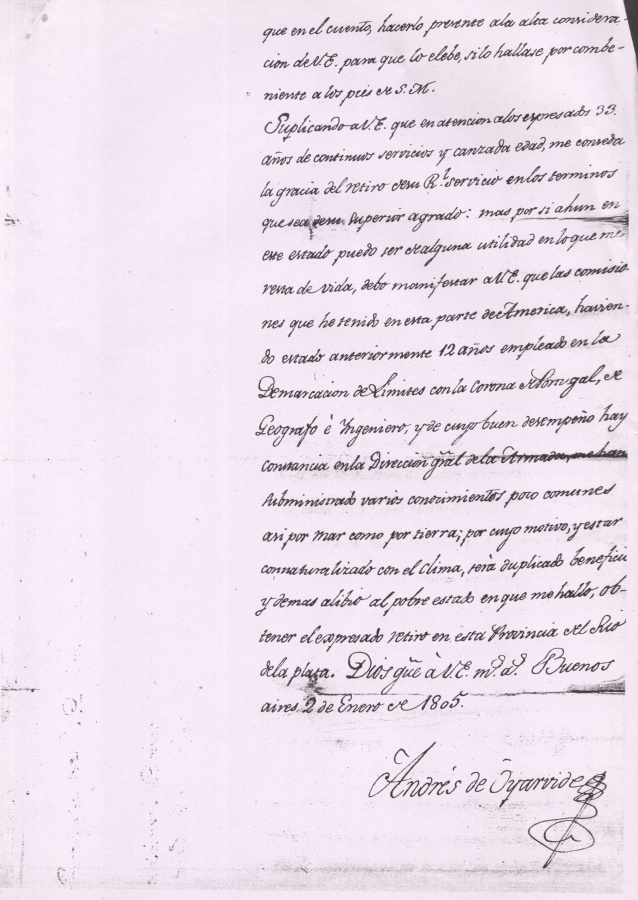 que en el cuento, hacerlo presente ala alta considera-
cion de V.E. para que lo elebe, si lo hallase por combe-
niente a los pies de S.M.
Suplicando a V.E. que en atencion alos expresados 33
años de continuos servicios y canzada edad, me conceda
la gracia del retiro desu Rl. servicio en los terminos
que sea desu superior agrado: mas por si ahun en
este estado puedo ser de alguna utilidad en lo que me
resta de vida, debo manifestar a V.E. que las comisio-
nes que he tenido en esta parte de America, havien-
do estado anteriormente 12 años empleado en la
Demarcacion de Limites con la Corona de Portugal, de
Geografo è Ingeniero, y de cuyo buen desempeño hay
constancia en la Direccion gral de la Armada, me han
subministrado varios conocimientos poco comunes
asi por mar como por tierra; por cuyo motivo, y estar
connaturalizado con el clima, serà duplicado beneficio
y demas alibio al pobre estado en que me hallo, ob-
tener el expresado retiro en esta Provincia del Rio
dela plata. Dios gũe à V.E. ms. as. Buenos
aires 2 de Enero de 1805.
Andrés de Oyarvide